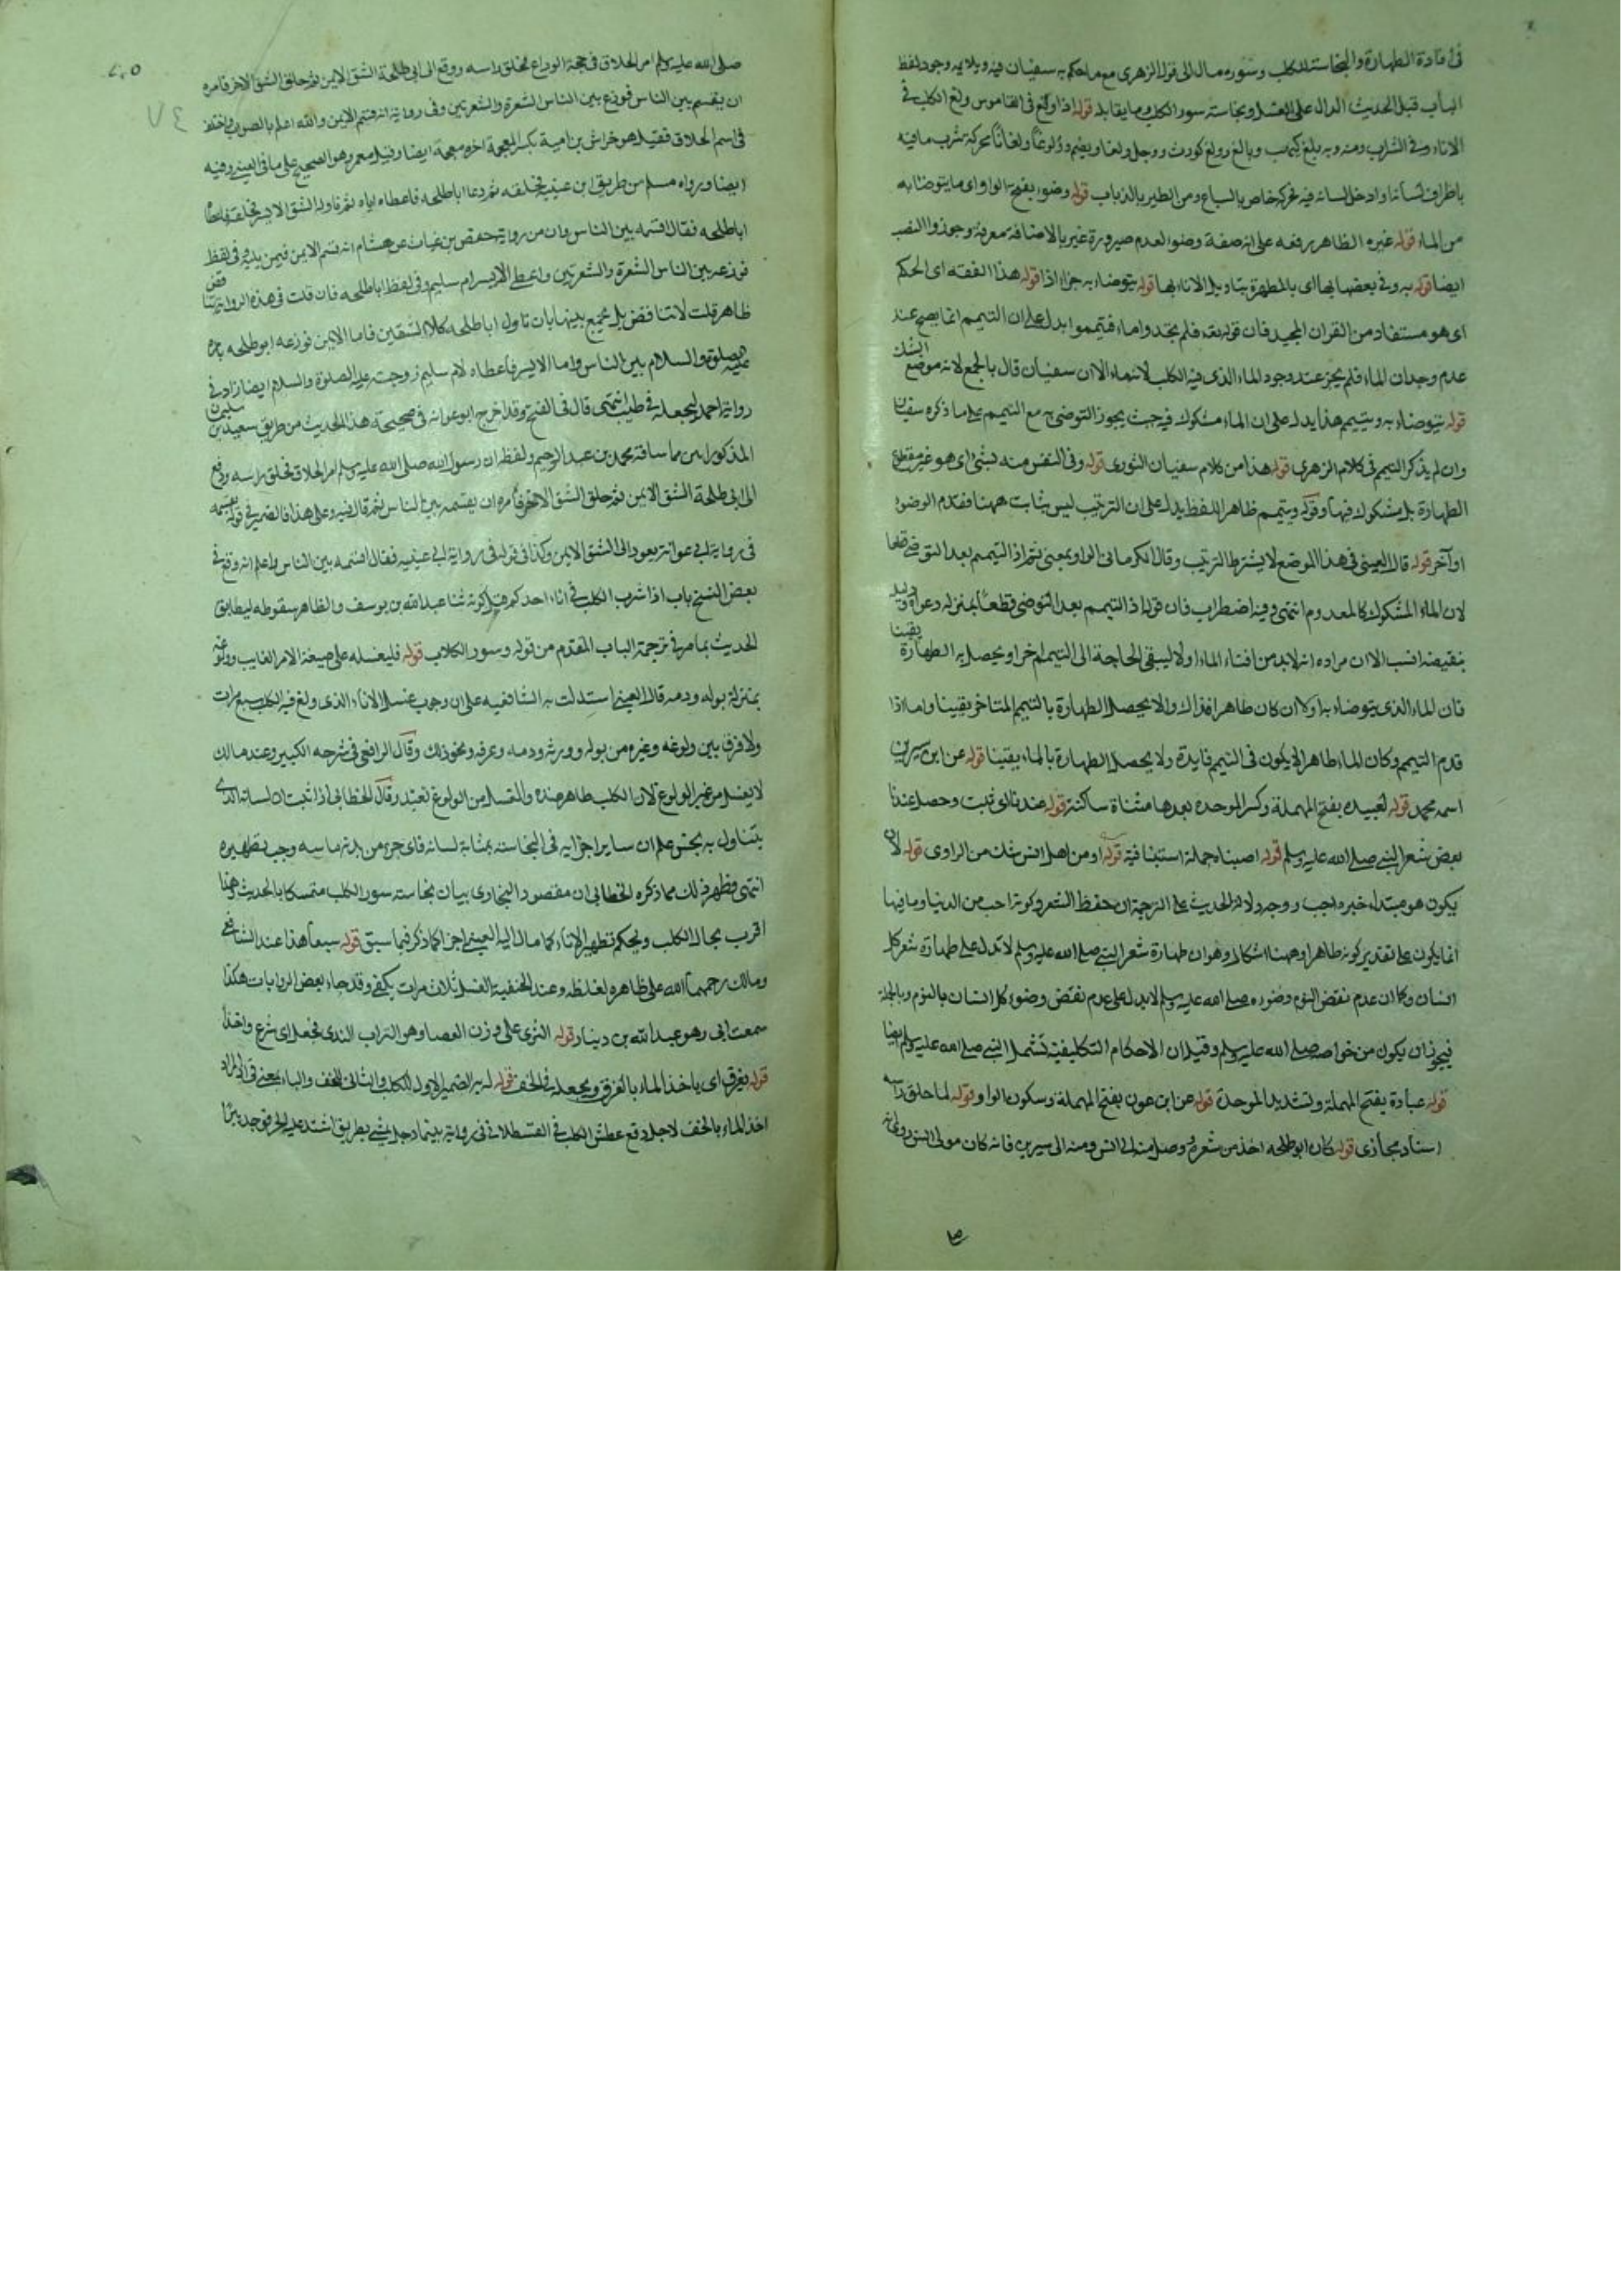 في افادة الطهارة والنجاسة للكلب وسؤره مال الى قول الزهري مع ما حكم به سفيان فيه ويلايمه وجود لفظ
الباب قبل الحديث الدال على الغسل ونجاسة سور الكلب وما يقابله قوله اذا ولغ في القاموس ولغ الكلب في
الاناء وفي الشراب ومنه وبه يلغ كيهب وبالغ وولغ كورث ووجل ولغا ويضم وولوغا وولغانا محركة شرب ما فيه
باطراف لسانه او ادخل لسانه فيه فحركه خاص بالسباع ومن الطير بالذباب قوله وضوء بفتح الواو اي ما يتوضا به
من الماء قوله غيره الظاهر رفعه على انه صفة وضوء لعدم صيرورة غير بالاضافة معرفة وجوزوا النصب
ايضا قوله به وفي بعضها بها اي بالمطهرة بتاويل الاناء بها قوله يتوضاء به جزاء اذا قوله هذا الفقه اي الحكم
اي هو مستفاد من القران المجيد فان قوله تع فلم تجدوا ماء فتيمموا يدل على ان التيمم انما يصح عند
عدم وجدان الماء فلم يجز عند وجود الماء الذي فيه الكلب لانه ماء الا ان سفيان قال بالجمع لانه موضع الشك
قوله يتوضاء به ويتيمم هذا يدل على ان الماء مشكوك فيه حيث يجوز التوضي به مع التيمم على ما ذكره سفيان
وان لم يذكر التيمم في كلام الزهري قوله هذا من كلام سفيان الثوري قوله وفي النفس منه شيئ اي هو غير مقطوع
الطهارة بل مشكوك فيها وقوله ويتيمم ظاهر اللفظ يدل على ان الترتيب ليس بثابت ههنا فقدم الوضوء
او آخر قوله قال العيني في هذا الموضع لا يشترط الترتيب وقال الكرماني الواو بمعنى ثم اذ التيمم بعد التوضي قطعا
لان الماء المشكوك كالمعدوم انتهى وفيه اضطراب فان قوله اذ التيمم بعد التوضي قطعا بمنزلة دعوى وتاييد
بنقيضه انسب الا ان مراده انه لا بد من افناء الماء اولا ليبقى الحاجة الى التيمم اخرا ويحصل به الطهارة يقينا
فان الماء الذي يتوضاء به اولا ان كان طاهرا فذاك والا يحصل الطهارة بالتيمم المتاخر يقينا واما اذا
قدم التيمم وكان الماء طاهرا لا يكون في التيمم فايدة ولا يحصل الطهارة بالماء يقينا قوله عن ابن سيرين
اسمه محمد قوله لعبيدة بفتح المهملة وكسر الموحدة بعدها مثناة ساكنة قوله عندنا اي ثبت وحصل عندنا
بعض شعر النبي صلى الله عليه وسلم قوله اصبناه جملة استينافية قوله او من اهل انس شك من الراوي قوله لان
يكون هو مبتداء خبره احب ووجه دلالة الحديث على الترجمة ان حفظ الشعر وكونه احب من الدنيا وما فيها
انما يكون على تقدير كونه طاهرا وههنا اشكال وهو ان طهارة شعر النبي صلى الله عليه وسلم لا تدل على طهارة شعر كل
انسان وكما ان عدم نقض النوم وضوءه صلى الله عليه وسلم لا يدل على عدم نقض وضوء كل انسان بالنوم وبالجملة
فيجوز ان يكون من خواصه صلى الله عليه وسلم وقيل ان الاحكام التكليفية تشمل النبي صلى الله عليه وسلم ايضا
قوله عبادة بفتح المهملة وتشديد الموحدة قوله عن ابن عون بفتح المهملة وسكون الواو وقوله لما حلق راسه
اسناد مجازي قوله كان ابو طلحه اخذ من شعره وصل منه الى انس ومنه الى سيرين فانه كان مولى انس وروى انه
صلى الله عليه وسلم امر الحلاق في حجة الوداع فحلق راسه ودفع الى ابي طلحة الشق الايمن ثم حلق الشق الاخر فامره
ان يقسم بين الناس فوزع بين الناس الشعرة والشعرتين وفي رواية انه قسم الايمن والله اعلم بالصواب واختلف
في اسم الحلاق فقيل هو خراش بن امية بكسر المعجمة اخره معجمة ايضا وقيل معمر وهو الصحيح على ما في العيني وفيه
ايضا ورواه مسلم من طريق ابن عيينة فحلقه ثم دعا اباطلحه فاعطاه اياه ثم ناوله الشق الايسر فحلقه فاعطاه
اباطلحه فقال اقسمه بين الناس وان من رواية حفص بن غياث عن هشام انه قسم الايمن فيمن يليه وفي لفظ
فوزعه بين الناس الشعرة والشعرتين واعطى الايسر ام سليم وفي لفظ اباطلحه فان قلت في هذه الروايات تناقض
ظاهر قلت لا تناقض بل يجمع بينها بان ناول اباطلحه كلا الشقين فاما الايمن فوزعه ابو طلحه بامره
عليه الصلوة والسلام بين الناس واما الايسر فاعطاه لام سليم زوجته بامره عليه الصلوة والسلام ايضا زاد في
رواية احمد لتجعله في طيبها انتهى قال في الفتح وقد اخرج ابو عوانه في صحيحه هذا الحديث من طريق سعيد بن سليمن
المذكور ابين مما ساقه محمد بن عبد الرحيم ولفظه ان رسول الله صلى الله عليه وسلم امر الحلاق فحلق راسه ودفع
الى ابي طلحة الشق الايمن ثم حلق الشق الاخر فامره ان يقسمه بين الناس ثم قال فيه وعلى هذا فالضمير في قوله يقسمه
في رواية ابي عوانة يعود الى الشق الايمن وكذا في قوله في رواية ابن عيينه فقال اقسمه بين الناس واعلم انه وقع في
بعض النسخ باب اذا شرب الكلب في اناء احدكم قبل قوله ثنا عبد الله بن يوسف والظاهر سقوطه ليطابق
الحديث بما مر في ترجمة الباب المقدم من قوله وسور الكلاب قوله فليغسله على صيغة الامر الغايب وولوغه
بمنزلة بوله ودمه قال العيني استدلت به الشافعيه على ان وجوب غسل الاناء الذي ولغ فيه الكلب سبع مرات
ولا فرق بين ولوغه وغيره من بوله وروثه ودمه وعرقه ونحو ذلك وقال الرافعي في شرحه الكبير وعند مالك
لا يغسل من غير الولوغ لان الكلب طاهر عنده والغسل من الولوغ تعبد وقال الخطابي اذا ثبت ان لسانه الذي
يتناول به نجس علم ان ساير اجزايه في النجاسة بمثابة لسانه فاي جزء من بدنه ماسه وجب تطهيره
انتهى فظهر من ذلك مما ذكره الخطابي ان مقصود البخاري بيان نجاسة سور الكلب متمسكا بالحديث وهذا
اقرب بحال الكلب ويحكم تطهير الاناء كما مال اليه العيني اجزا كما ذكر فيما سبق قوله سبعا هذا عند الشافعي
ومالك رحمهما الله على ظاهره لغلظه وعند الحنفية الغسل ثلاث مرات يكفي وقد جاء بعض الروايات هكذا
سمعت ابي وهو عبد الله بن دينار قوله الثرى على وزن العصا وهو التراب الندي فجعل اي شرع واخذ
قوله يغرف اي ياخذ الماء بالغرف ويجعله في الخف قوله له به الضمير الاول للكلب والثاني للخف والباء بمعنى في والمراد
اخذ الماء بالخف لاجل دفع عطش الكلب في القسطلاني في رواية بينما رجل يمشي بطريق اشتد عليه الحر فوجد بيرا
٢٠٥
٧٤